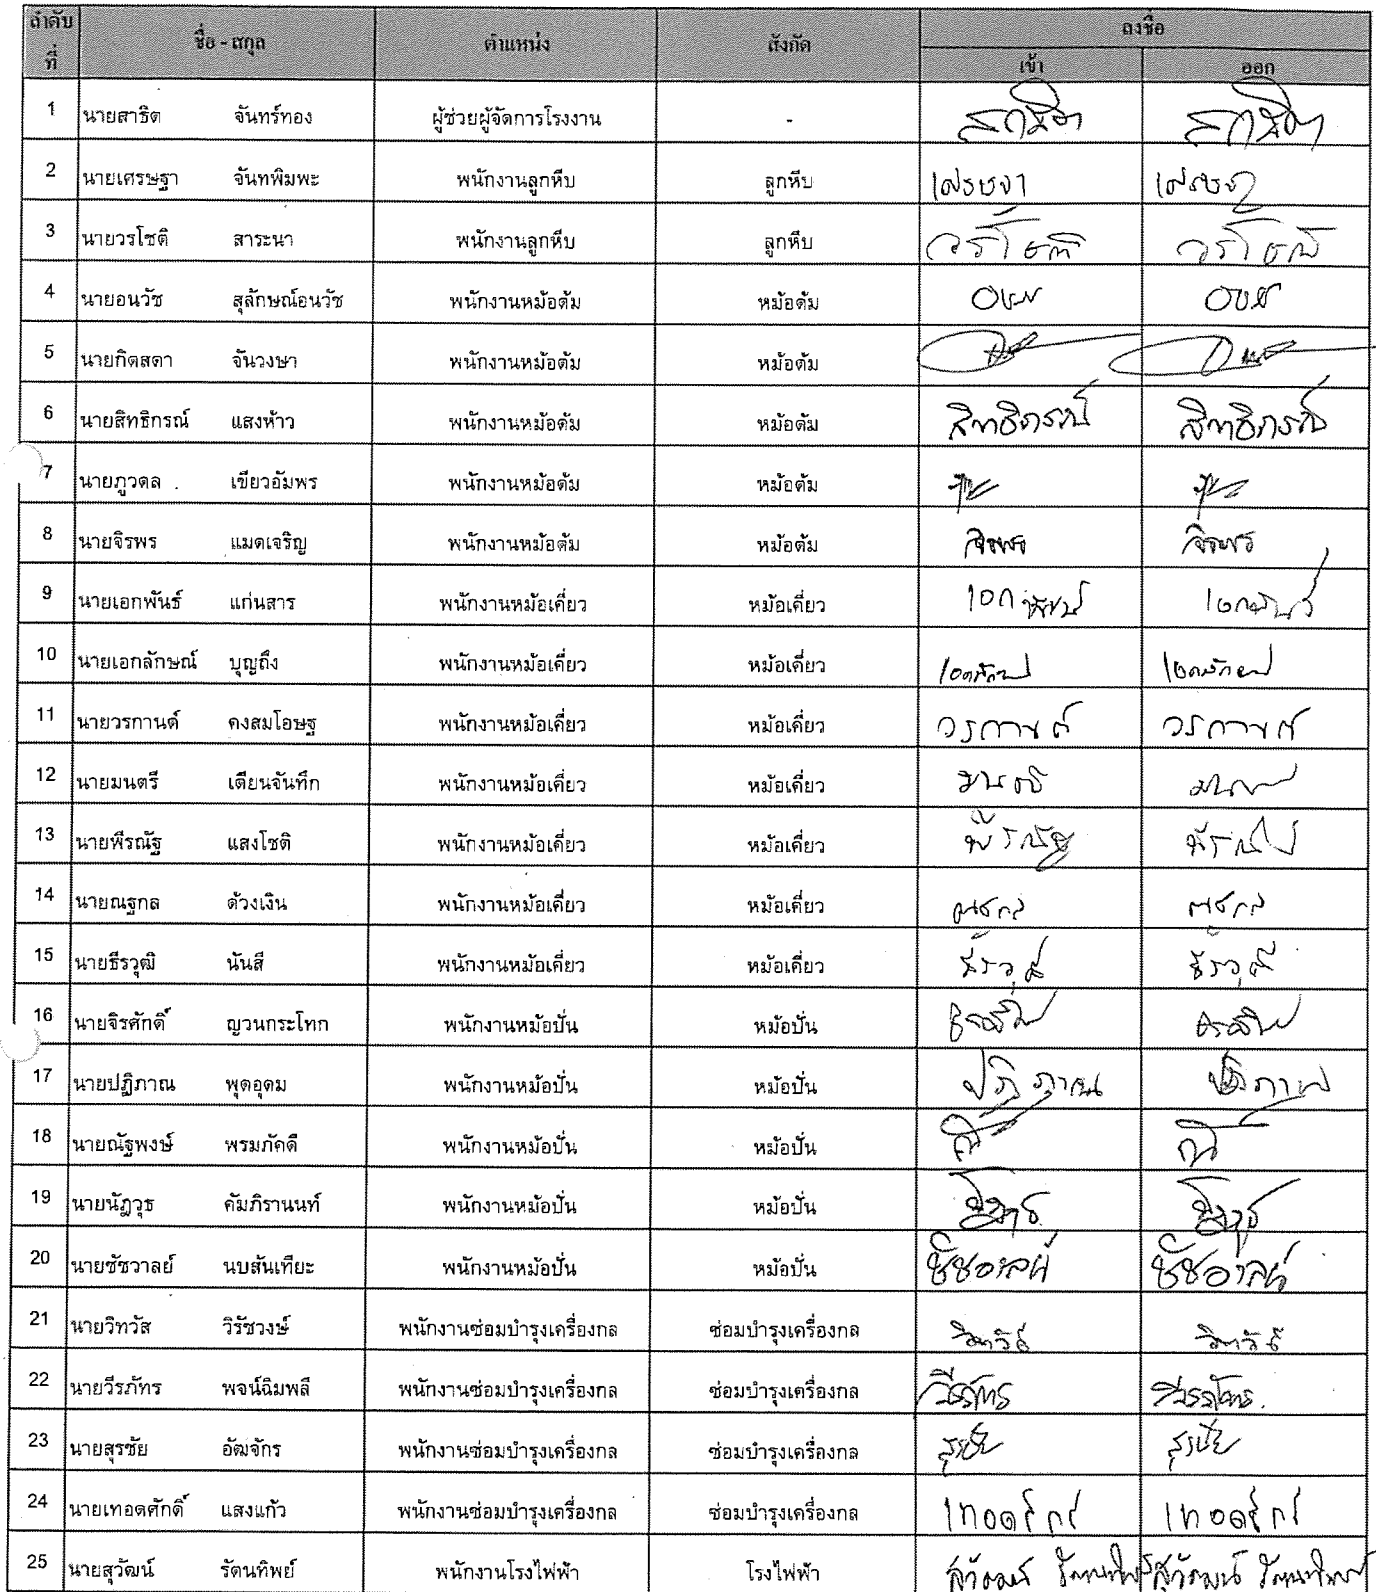 ลำดับที่ ชื่อ - สกุล ตำแหน่ง สังกัด ลงชื่อ
เข้า ออก
1 นายสาธิต จันทร์ทอง ผู้ช่วยผู้จัดการโรงงาน -
2 นายเศรษฐา จันทพิมพะ พนักงานลูกหีบ ลูกหีบ เศรษฐา เศรษฐา
3 นายวรโชติ สาระนา พนักงานลูกหีบ ลูกหีบ วรโชติ วรโชติ
4 นายอนวัช สุลักษณ์อนวัช พนักงานหม้อต้ม หม้อต้ม
5 นายกิตสดา จันวงษา พนักงานหม้อต้ม หม้อต้ม
6 นายสิทธิกรณ์ แสงห้าว พนักงานหม้อต้ม หม้อต้ม สิทธิกรณ์ สิทธิกรณ์
7 นายภูวดล เขียวอัมพร พนักงานหม้อต้ม หม้อต้ม
8 นายจิรพร แมดเจริญ พนักงานหม้อต้ม หม้อต้ม จิรพร จิรพร
9 นายเอกพันธ์ แก่นสาร พนักงานหม้อเคี่ยว หม้อเคี่ยว เอกพันธ์ เอกพันธ์
10 นายเอกลักษณ์ บุญถึง พนักงานหม้อเคี่ยว หม้อเคี่ยว เอกลักษณ์ เอกลักษณ์
11 นายวรกานต์ คงสมโอษฐ พนักงานหม้อเคี่ยว หม้อเคี่ยว วรกานต์ วรกานต์
12 นายมนตรี เตียนจันทึก พนักงานหม้อเคี่ยว หม้อเคี่ยว มนตรี มนตรี
13 นายพีรณัฐ แสงโชติ พนักงานหม้อเคี่ยว หม้อเคี่ยว พีรณัฐ พีรณัฐ
14 นายณฐกล ด้วงเงิน พนักงานหม้อเคี่ยว หม้อเคี่ยว ณฐกล ณฐกล
15 นายธีรวุฒิ นันสี พนักงานหม้อเคี่ยว หม้อเคี่ยว ธีรวุฒิ ธีรวุฒิ
16 นายจิรศักดิ์ ญวนกระโทก พนักงานหม้อปั่น หม้อปั่น
17 นายปฏิภาณ พุดอุดม พนักงานหม้อปั่น หม้อปั่น ปฏิภาณ ปฏิภาณ
18 นายณัฐพงษ์ พรมภักดี พนักงานหม้อปั่น หม้อปั่น
19 นายนัฎวุธ คัมภิรานนท์ พนักงานหม้อปั่น หม้อปั่น
20 นายชัชวาลย์ นบสันเทียะ พนักงานหม้อปั่น หม้อปั่น ชัชวาลย์ ชัชวาลย์
21 นายวิทวัส วิรัชวงษ์ พนักงานซ่อมบำรุงเครื่องกล ซ่อมบำรุงเครื่องกล วิทวัส วิทวัส
22 นายวีรภัทร พจน์ฉิมพลี พนักงานซ่อมบำรุงเครื่องกล ซ่อมบำรุงเครื่องกล วีรภัทร วีรภัทร
23 นายสุรชัย อัฒจักร พนักงานซ่อมบำรุงเครื่องกล ซ่อมบำรุงเครื่องกล สุรชัย สุรชัย
24 นายเทอดศักดิ์ แสงแก้ว พนักงานซ่อมบำรุงเครื่องกล ซ่อมบำรุงเครื่องกล
25 นายสุวัฒน์ รัตนทิพย์ พนักงานโรงไฟฟ้า โรงไฟฟ้า สุวัฒน์ รัตนทิพย์ สุวัฒน์ รัตนทิพย์